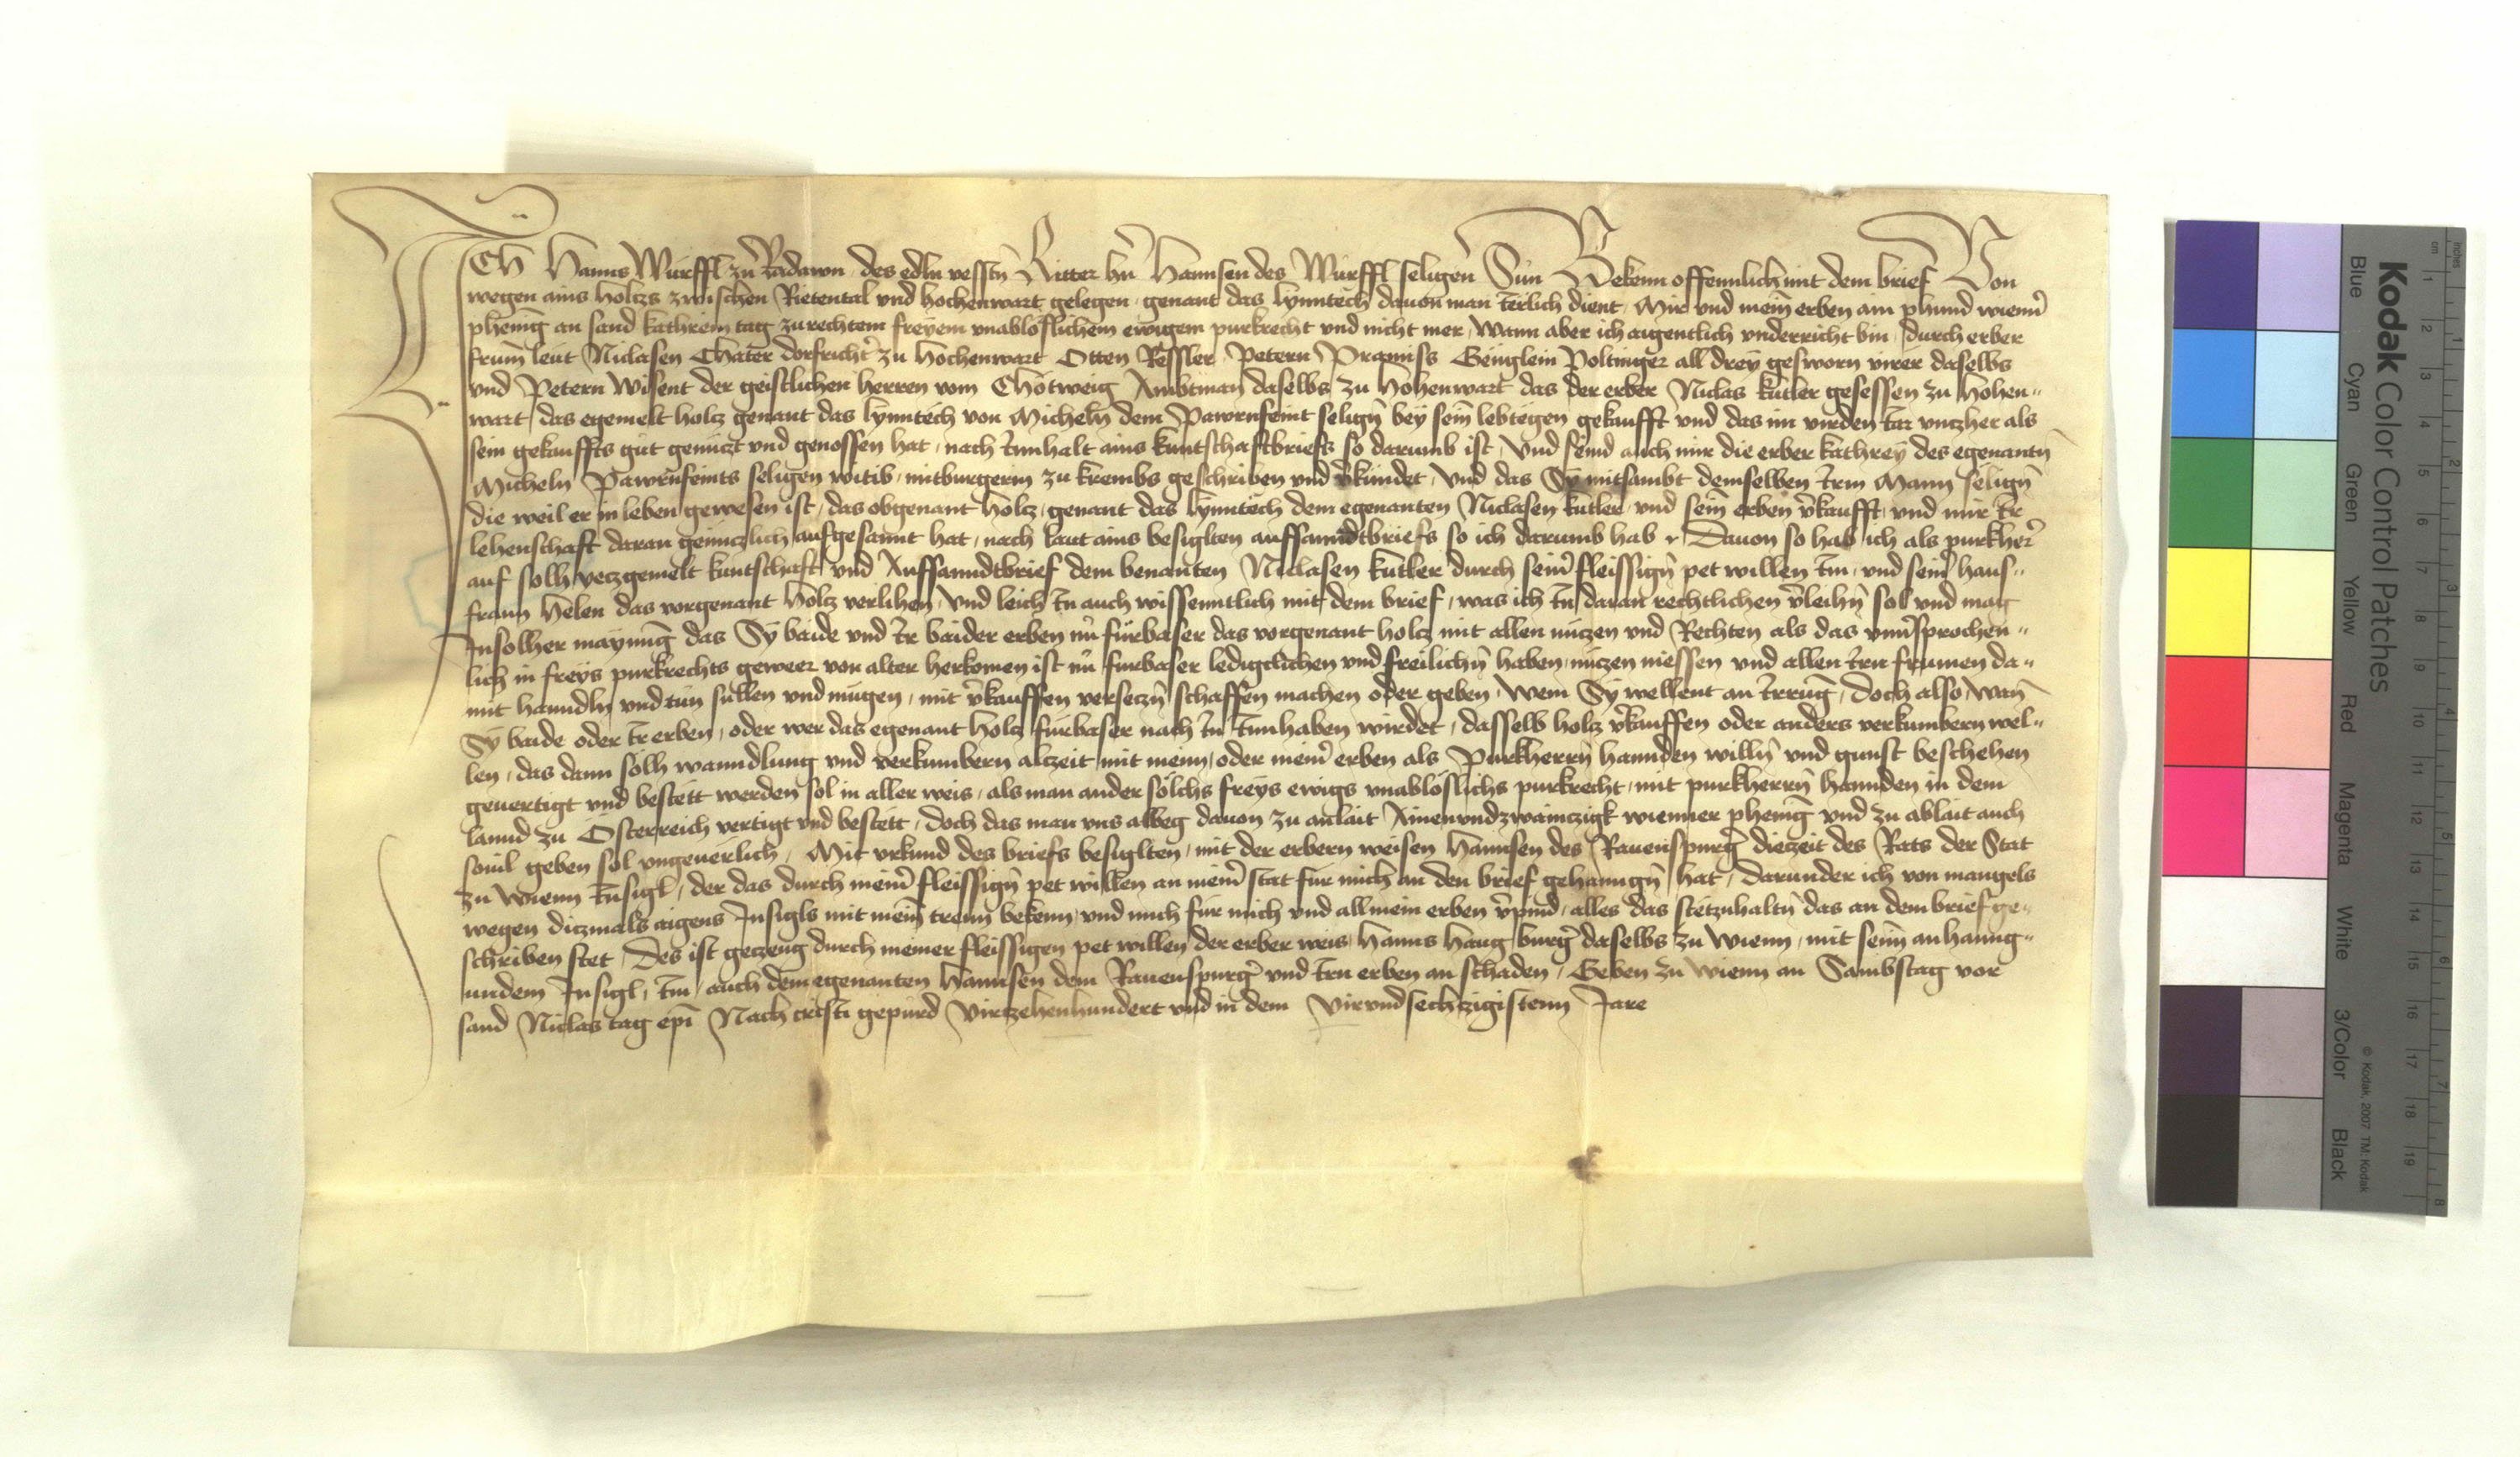 ICh Hanns Würffl zu Radawn des edln vesstn Ritter hern Hannsen des Würffl seligen Sun Bekenn offennlich mit dem brief Von
wegen ains holtzs zwischen Rietental vnd hochenwart gelegen genant das lynntech dauon man ierlich dient Mir vnd mein erben ain phund wienner
phening an sand kathrein tag zu rechtem freyem vnablöslichem ewigem purkrecht vnd nicht mer Wann aber ich aigentlich vnderricht bin durch erber
frum leüt Niclasen Chater dorfrichter zu hochenwart Otten Ressler Petern Pramiss Genglein Poltinger all drey gesworn virer daselbs
vnd Petern Wisent der geistlichen herren vom Chötweig Ambtman daselbs zu Hohenwart das der erber Niclas kutler gesessen zu Hohen"
wart das egemelt holz genant das lynntech von Micheln dem Pawrnfeint seligen bey sein lebtegen gekaufft vnd das in virden iar vnczher als
sein gekauffts güt genüczt vnd genossen hat nach innhalt ains kuntschaftbriefs so darumb ist Vnd seind auch mir die erber kathrey des egenantn
Micheln Pawrnfeints seligen witib mitburgerin zu krembs geschriben vnd verkündet Vnd das Sy mitsambt demselben irm Mann seligen
die weil er in leben gewesen ist das obgenant holz genant das lynntech dem egenanten Niclasen kutler vnd sein erben verkaufft vnd mir ir
lehenschaft daran genczlich aufgesannt hat nach laut ains besiglten auffanndtbriefs so ich darumb hab Dauon so hab ich als purkherr
auf solh yeczgemelt kuntschaft vnd Auffanndtbrief dem benanten Niclasen kutler durch seiner fleissigen pet willen im vnd seiner haus"
fraun Helen das vorgenant holz verlihen Vnd leich in auch wissenntlich mit dem brief was ich in daran rechtlichen verleihn sol vnd mag
In solher maynung das Sy baide vnd ir baider erben nu fürbaser das vorgenant holcz mit allen nuczen vnd Rechten als das vnuersprochen"
lich in freys purkrechts gewer von alter herkomen ist nu furbaser ledigclichen vnd freilichn haben nuczen niessen vnd allen irn frumen da"
mit hanndln vnd tun sullen vnd mugen mit verkauffen verseczn schaffen machen oder geben Wem Sy wellent an irrung doch also Wann
Sy baide oder ir erben oder wer das egenant holz fürbaser nach in innhaben wirdet dasselb holz verkauffen oder anders verkumbern wel"
len das dann solh wanndlung vnd verkumbern alczeit mit mein oder meiner erben als Purkherrn hannden willn vnd gunst beschehen
geuertigt vnd bestett werden sol in aller weis als man ander sölchs freys ewigs vnablöslichs purkrecht mit purkherrn hannden in dem
lannd zu Österreich vertigt vnd bestett doch das man vns albeg dauon zu anlait Ainenvndzwainczigk wienner phening vnd zu ablait auch
souil geben sol vngeuerlich Mit vrkund des briefs besiglten mit der erbern weisen Hannsen des Rauenspurger dieczeit des Rats der Stat
zu Wienn insigl der das durch meiner fleissign pet willen an meiner stat für mich an den brief gehanngn hat darunder ich von mangels
wegen diczmals aigens Insigls mit mein trewn bekenn vnd mich für mich vnd all mein erben verpind alles das stetzuhaltn das an dem brief ge"
schriben stet Des ist geczeug durch meiner fleissigen pet willen der erber weis Hanns Haug burger daselbs zu Wienn mit seim anhanng"
undem Insigl im auch dem egenanten Hannsen dem Rauenspurger vnd irn erben an schaden Geben zu Wienn an Sambstag vor
sand Niclas tag epi Nach cristi gepurd Virzehenhundert vnd in dem Virvndsechzigistenn Jare
Kodak Color Control Patches
Blue Cyan Green Yellow Red Magenta White 3/Color Black
© Kodak, 2007 TM: Kodak
cm 1 2 3 4 5 6 7 8 9 10 11 12 13 14 15 16 17 18 19
Inches 1 2 3 4 5 6 7 8